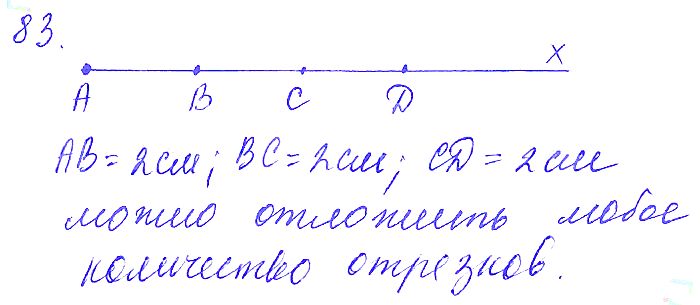 83.
x
A B C D
AB = 2 см; BC = 2 см; CD = 2 см
можно отложить любое
количество отрезков.